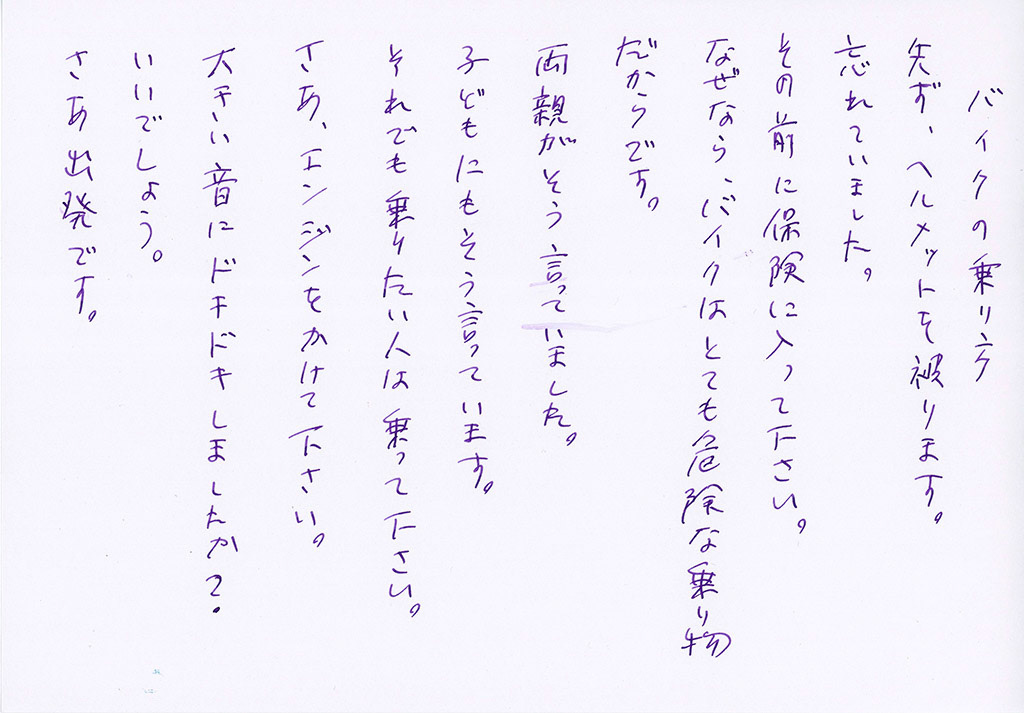 バイクの乗り方
先ず、ヘルメットを被ります。
忘れていました。
その前に保険に入って下さい。
なぜなら、バイクはとても危険な乗り物
だからです。
両親がそう言っていました。
子どもにもそう言っています。
それでも乗りたい人は乗って下さい。
さあ、エンジンをかけて下さい。
大きい音にドキドキしましたか?
いいでしょう。
さあ出発です。